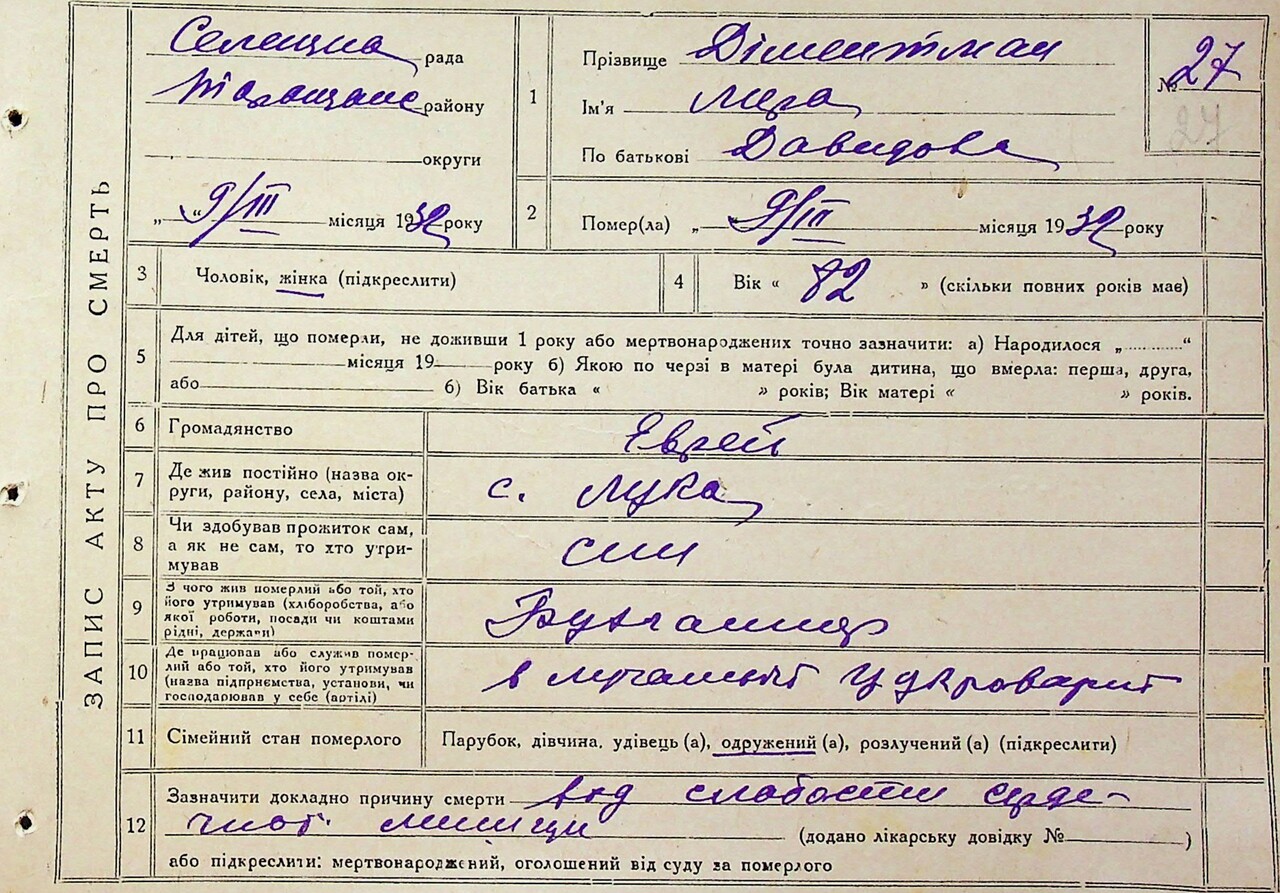 ЗАПИС АКТУ ПРО СМЕРТЬ
Селищна рада
Таращанс району
округи
„ 9/III місяця 1932 року
1
Прізвище Діментман
Ім'я
По батькові Давидова
№ 27
27
2
Помер(ла) „ 9/III місяця 1932 року
3 Чоловік, жінка (підкреслити)
4 Вік « 82 » (скільки повних років має)
5
Для дітей, що померли, не доживши 1 року або мертвонароджених точно зазначити: а) Народилося „ “
місяця 19 року б) Якою по черзі в матері була дитина, що вмерла: перша, друга,
або б) Вік батька « » років; Вік матері « » років.
6 Громадянство Еврей
7
Де жив постійно (назва ок-
руги, району, села, міста)
с. Лука
8
Чи здобував прожиток сам,
а як не сам, то хто утри-
мував
син
9
З чого жив померлий або той, хто
його утримував (хліборобства, або
якої роботи, посади чи коштами
рідні, держави)
10
Де працював або служив помер-
лий або той, хто його утримував
(назва підприємства, установи, чи
господарював у себе (артілі)
в Лучанський цукроварні
11 Сімейний стан померлого Парубок, дівчина, удівець (а), одружений (а), розлучений (а) (підкреслити)
12
Зазначити докладно причину смерти від слабости серде-
чной (додано лікарську довідку № )
або підкреслити: мертвонароджений, оголошений від суду за померлого